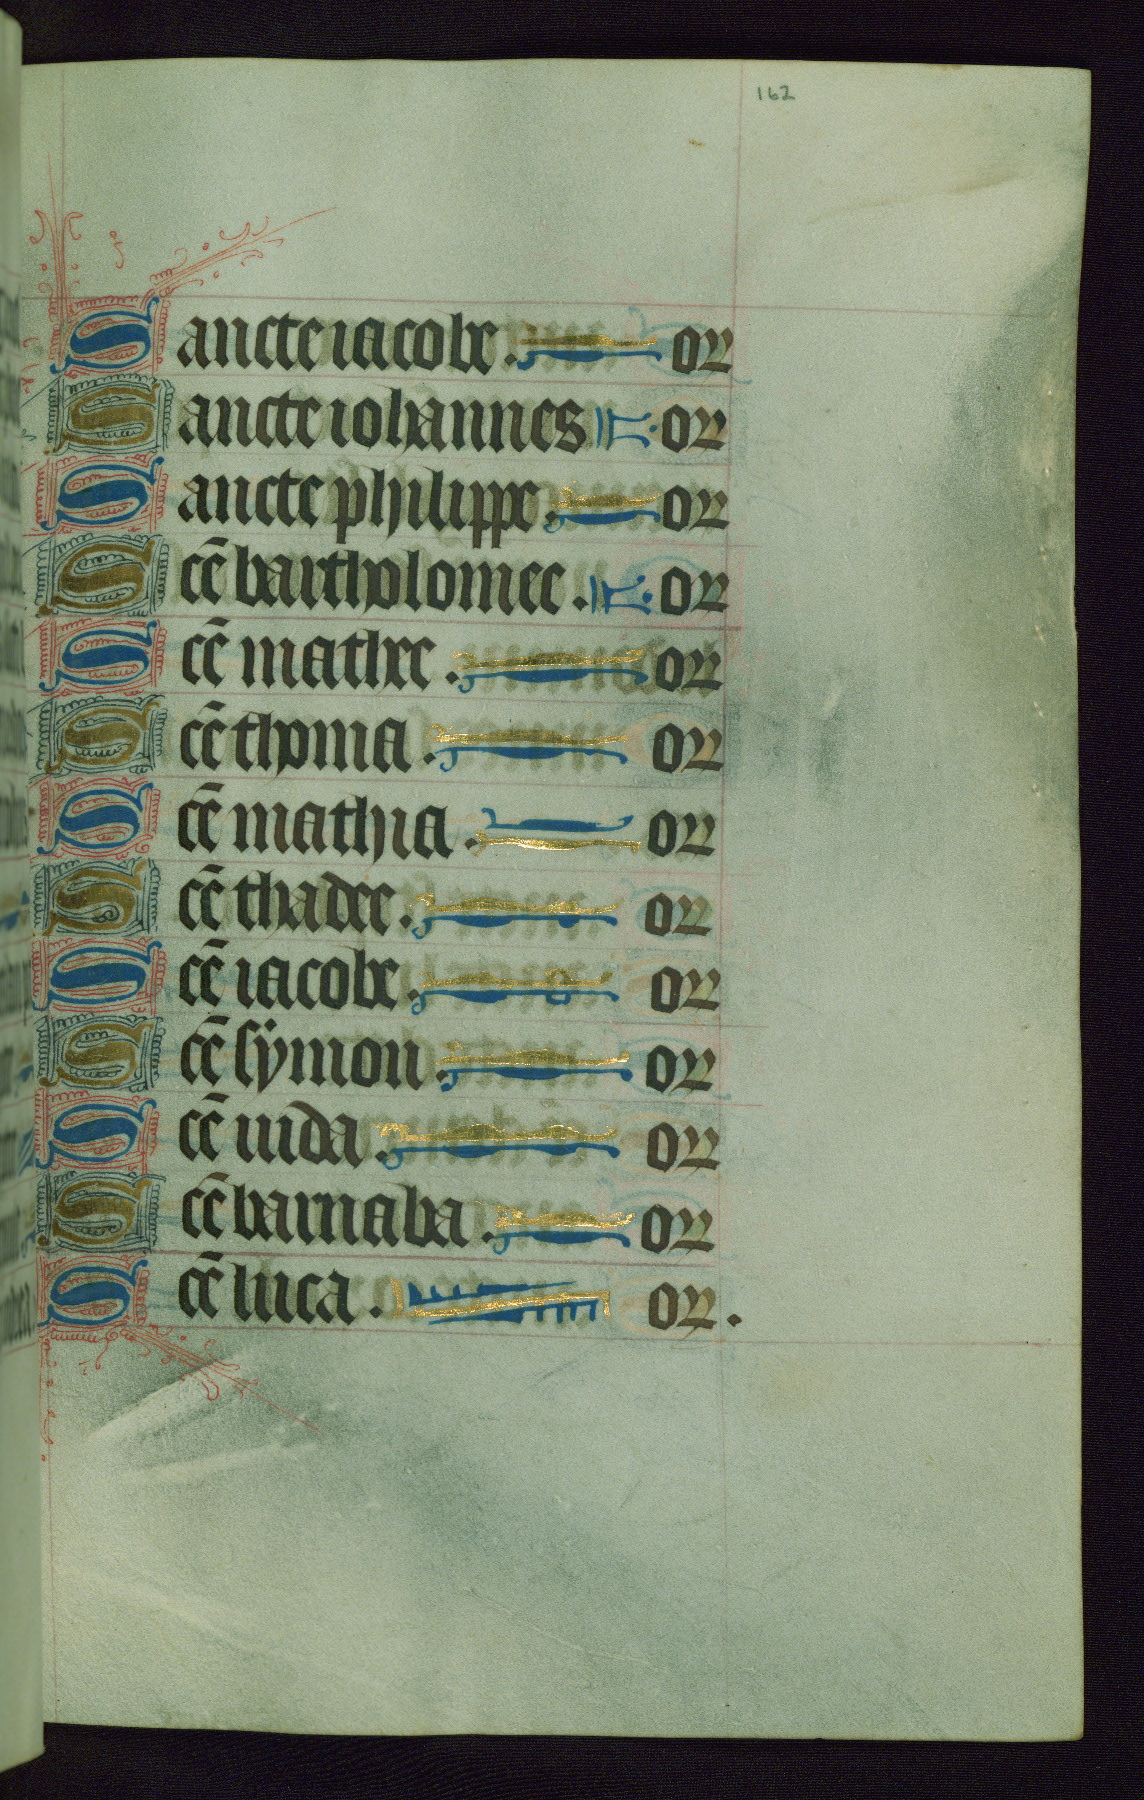 162
Sancte iacobe. or
Sancte iohannes or
Sancte philippe. or
Scē bartholomee. or
Scē mathee. or
Scē thoma. or
Scē mathia. or
Scē thadee. or
Scē iacobe. or
Scē symon. or
Scē iuda. or
Scē barnaba. or
Scē luca. or.